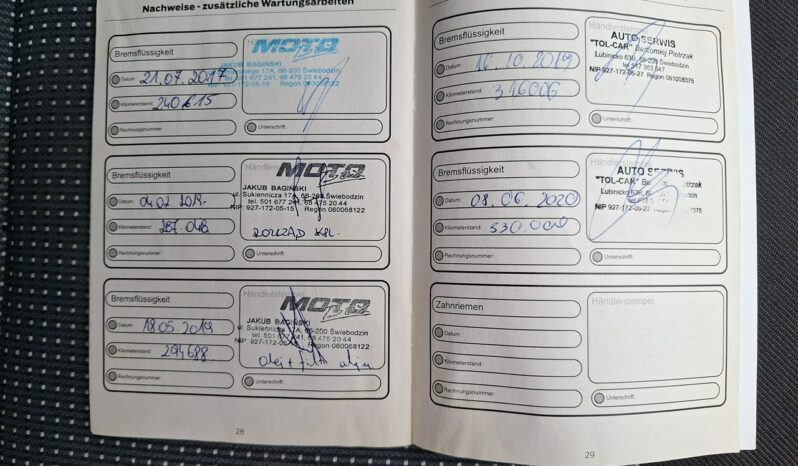 Nachweise - zusätzliche Wartungsarbeiten
Bremsflüssigkeit
Datum: 21.07.2017
Kilometerstand: 240615
Rechnungsnummer:
MOTO
JAKUB BAGIŃSKI
17A, 66-200 Świebodzin
501 677 241, 68 475 20 44
Regon 080068122
Unterschrift:
Bremsflüssigkeit
Datum:
Kilometerstand: 287 048
Rechnungsnummer:
Händlerstempel
MOTO
JAKUB BAGIŃSKI
ul. Sukiennicza 17A, 66-200 Świebodzin
tel. 501 677 241, 68 475 20 44
NIP 927-172-05-15 Regon 080068122
ROZRZĄD KPL.
Unterschrift:
Bremsflüssigkeit
Datum: 18.05.2019
Kilometerstand: 294688
Rechnungsnummer:
Händlerstempel
MOTO
JAKUB BAGIŃSKI
ul. Sukiennicza 17A, 66-200 Świebodzin
tel. 501 677 241, 68 475 20 44
NIP 927-172-05-15 Regon 080068122
Unterschrift:
28
Bremsflüssigkeit
Datum: 16.10.2019
Kilometerstand: 316006
Rechnungsnummer:
Händlerstempel
AUTO SERWIS
"TOL-CAR" Bartłomiej Pietrzak
Lubinicko 53B, 66-200 Świebodzin
tel 517 363 547
NIP 927-172-86-27 Regon 081008375
Unterschrift:
Bremsflüssigkeit
Datum: 08.06.2020
Kilometerstand: 330.000
Rechnungsnummer:
Händlerstempel
AUTO SERWIS
"TOL-CAR" Pietrzak
Lubinicko 53B,
NIP 927-172-86-27
Unterschrift:
Zahnriemen
Datum:
Kilometerstand:
Rechnungsnummer:
Händlerstempel
Unterschrift:
29